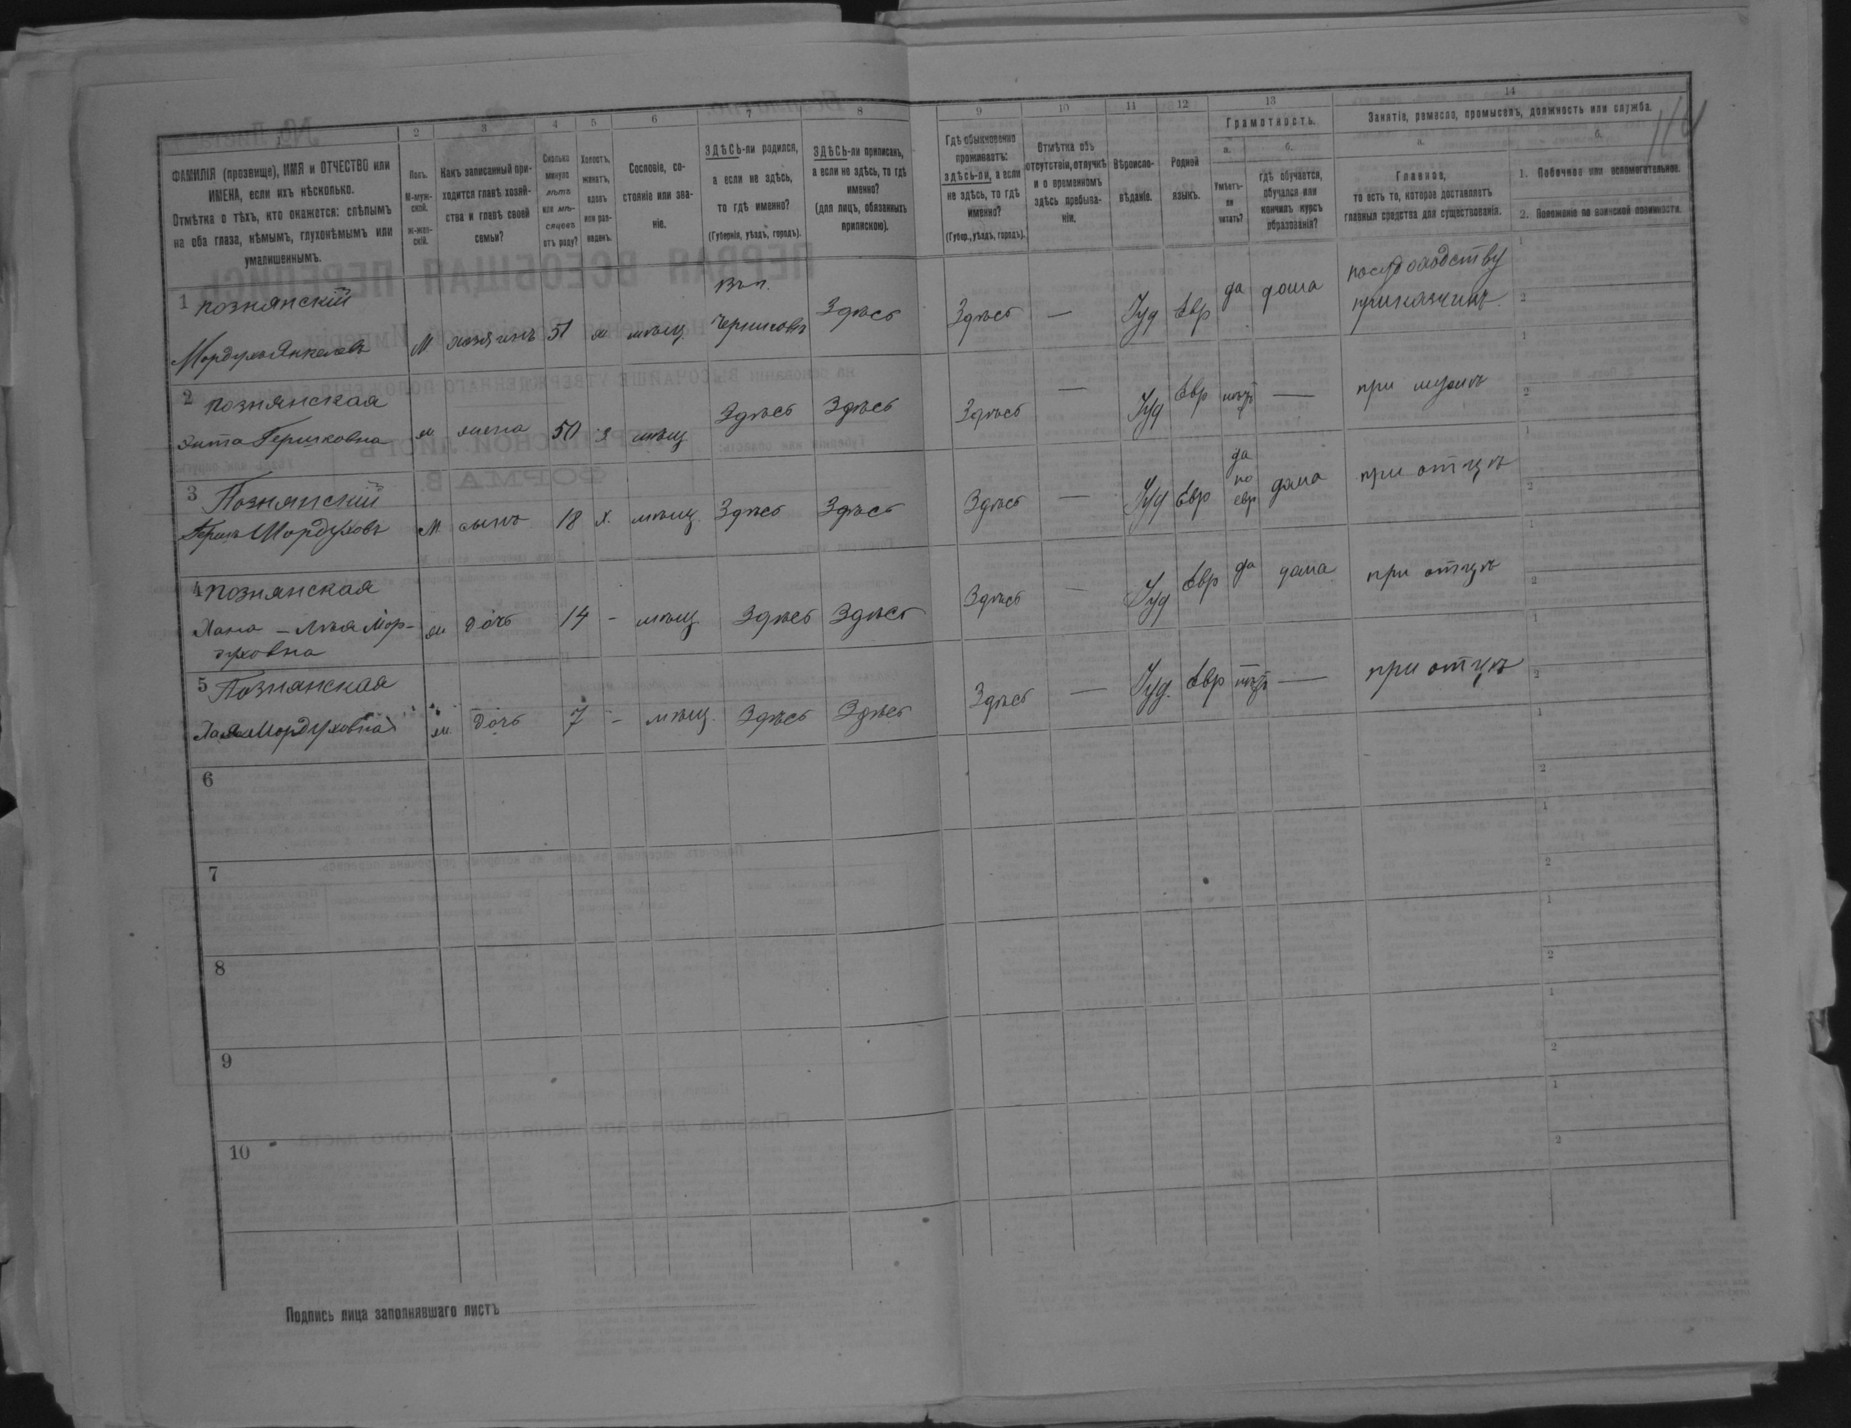 1 2 3 4 5 6 7 8 9 10 11 12 13 14
ФАМИЛІЯ (прозвище), ИМЯ и ОТЧЕСТВО или
ИМЕНА, если ихъ нѣсколько.
Отмѣтка о тѣхъ, кто окажется: слѣпымъ
на оба глаза, нѣмымъ, глухонѣмымъ или
умалишеннымъ.
Полъ.
М-муж-
ской.
Ж-жен-
скій.
Какъ записанный при-
ходится главѣ хозяй-
ства и главѣ своей
семьи?
Сколько
минуло
лѣтъ
или мѣ-
сяцевъ
отъ роду?
Холостъ,
женатъ,
вдовъ
или раз-
веденъ.
Сословіе, со-
стояніе или зва-
ніе.
ЗДѢСЬ-ли родился,
а если не здѣсь,
то гдѣ именно?
(Губернія, уѣздъ, городъ).
ЗДѢСЬ-ли приписанъ,
а если не здѣсь, то гдѣ
именно?
(для лицъ, обязанныхъ
припискою).
Гдѣ обыкновенно
проживаетъ:
здѣсь-ли, а если
не здѣсь, то гдѣ
именно?
(Губер., уѣздъ, городъ).
Отмѣтка объ
отсутствіи, отлучкѣ
и о временномъ
здѣсь пребыва-
ніи.
Вѣроиспо-
вѣданіе.
Родной
языкъ.
Грамотность.
а.
Умѣетъ-
ли
читать?
б.
гдѣ обучается,
обучался или
кончилъ курсъ
образованія?
Занятіе, ремесло, промыселъ, должность или служба.
а.
Главное,
то есть то, которое доставляетъ
главныя средства для существованія.
б.
1. Побочное или вспомогательное.
2. Положеніе по воинской повинности.
1 Познянскій
Мордухъ Янкелевъ М хозяинъ 51 ж мѣщ. Черниговъ Здѣсь Здѣсь — Іуд Евр да дома
приказчикъ
2 Познянская
Гершковна ж жена 50 з мѣщ Здѣсь Здѣсь Здѣсь — Іуд Евр нѣтъ — при мужѣ
3 Познянский
Гершъ Мордуховъ М сынъ 18 х. мѣщ. Здѣсь Здѣсь Здѣсь — Іуд Евр да по евр дома при отцѣ
4 Познянская
Хана - Лѣя Мор-
духовна ж дочь 14 - мѣщ. Здѣсь Здѣсь Здѣсь — Іуд Евр да дома при отцѣ
5 Познянская
Хая Мордуховна ж дочь 7 - мѣщ. Здѣсь Здѣсь Здѣсь — Іуд. Евр нѣтъ — при отцѣ
6
7
8
9
10
Подпись лица заполнявшаго листъ